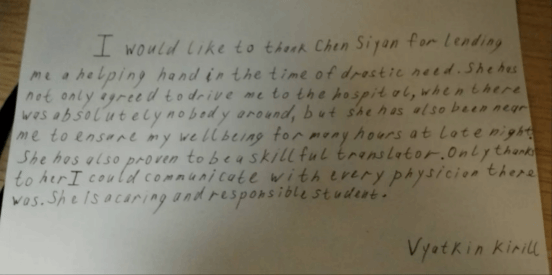 I would like to thank Chen Siyan for lending
me a helping hand in the time of drastic need. She has
not only agreed to drive me to the hospital, when there
was absolutely nobody around, but she has also been near
me to ensure my wellbeing for many hours at late night.
She has also proven to be a skillful translator. Only thanks
to her I could communicate with every physician there
was. She is a caring and responsible student.
Vyatkin Kirill